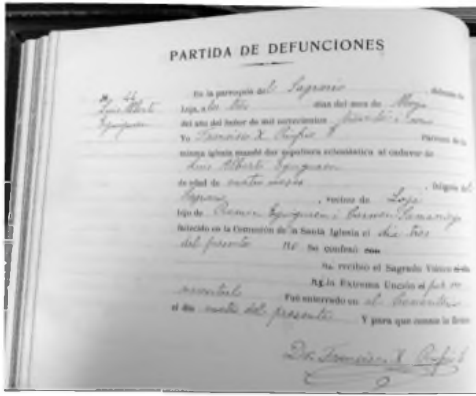 PARTIDA DE DEFUNCIONES
En la parroquia del Sagrario
Luis Alberto
Loja, a los tres días del mes de Mayo
Eguiguren
del año del Señor de mil novecientos
Yo Francisco X. Párroco de la
misma iglesia mandé dar sepultura eclesiástica al cadáver de
Luis Alberto Eguiguren
de edad de cuatro meses, feligrés del
Sagrario, vecino de Loja
hijo de Ramón Eguiguren i Carmen Samaniego
falleció en la Comunión de la Santa Iglesia el día tres
del presente no Se confesó
Ni recibió el Sagrado Viático
la Extrema Unción por no
necesitarlo Fué enterrado en el Cementerio
el día cuatro del presente Y para que conste lo firmo
Dr. Francisco X.